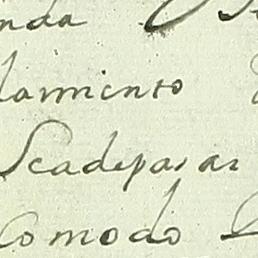 nda
lamiento
Seadepasar
comodo